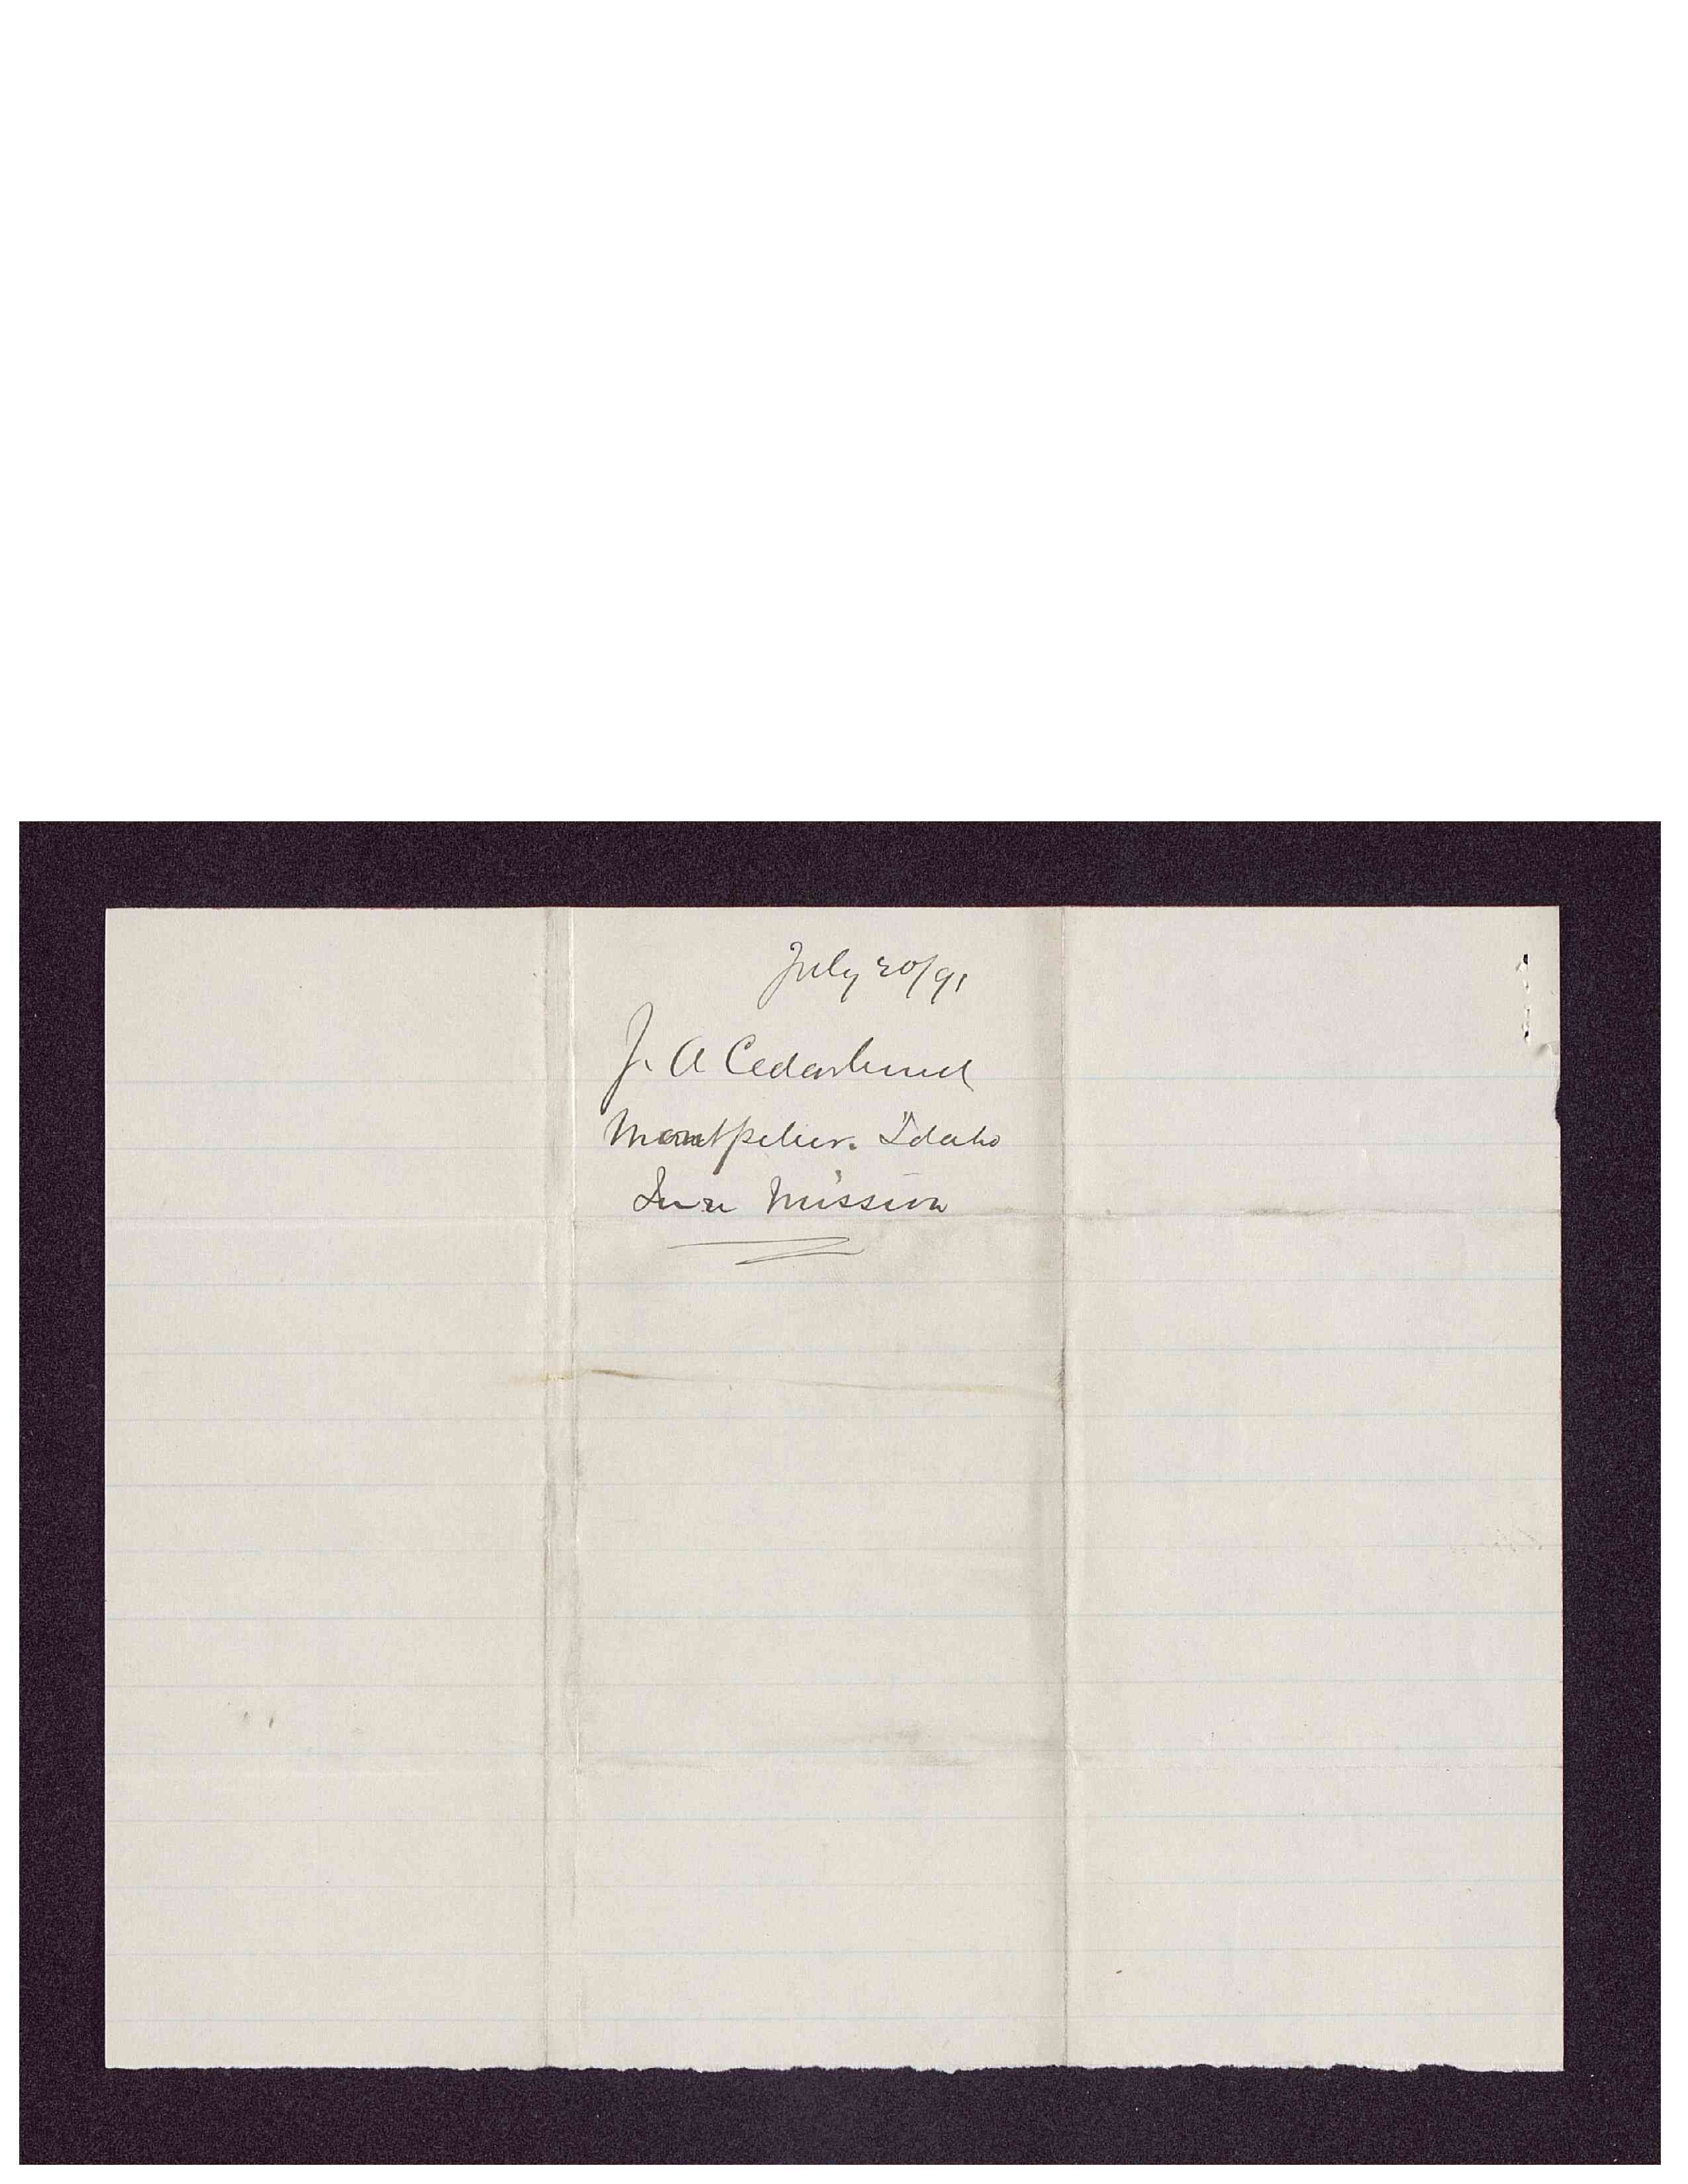 July 20/91
J. A Cedarlund
Montpelier. Idaho
Mission